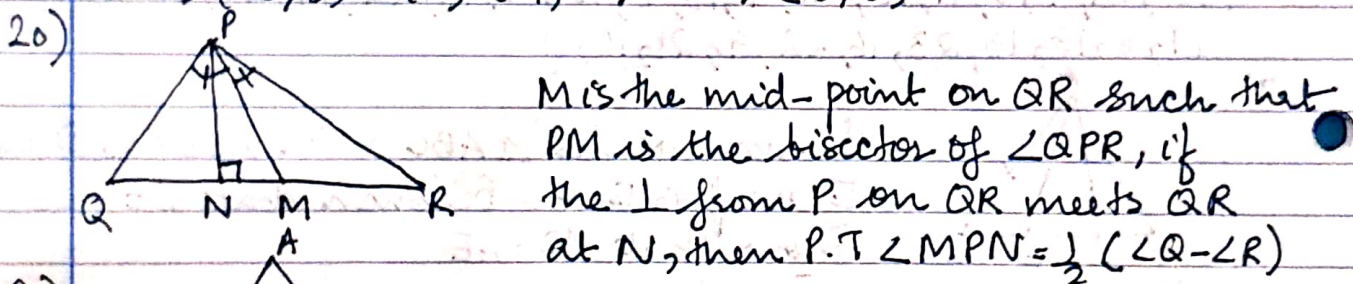 20)
P
M is the mid-point on QR such that
PM is the bisector of ∠QPR, if
the ⊥ from P on QR meets QR
at N, then P.T ∠MPN = 1/2 (∠Q-∠R)
Q N M R
A